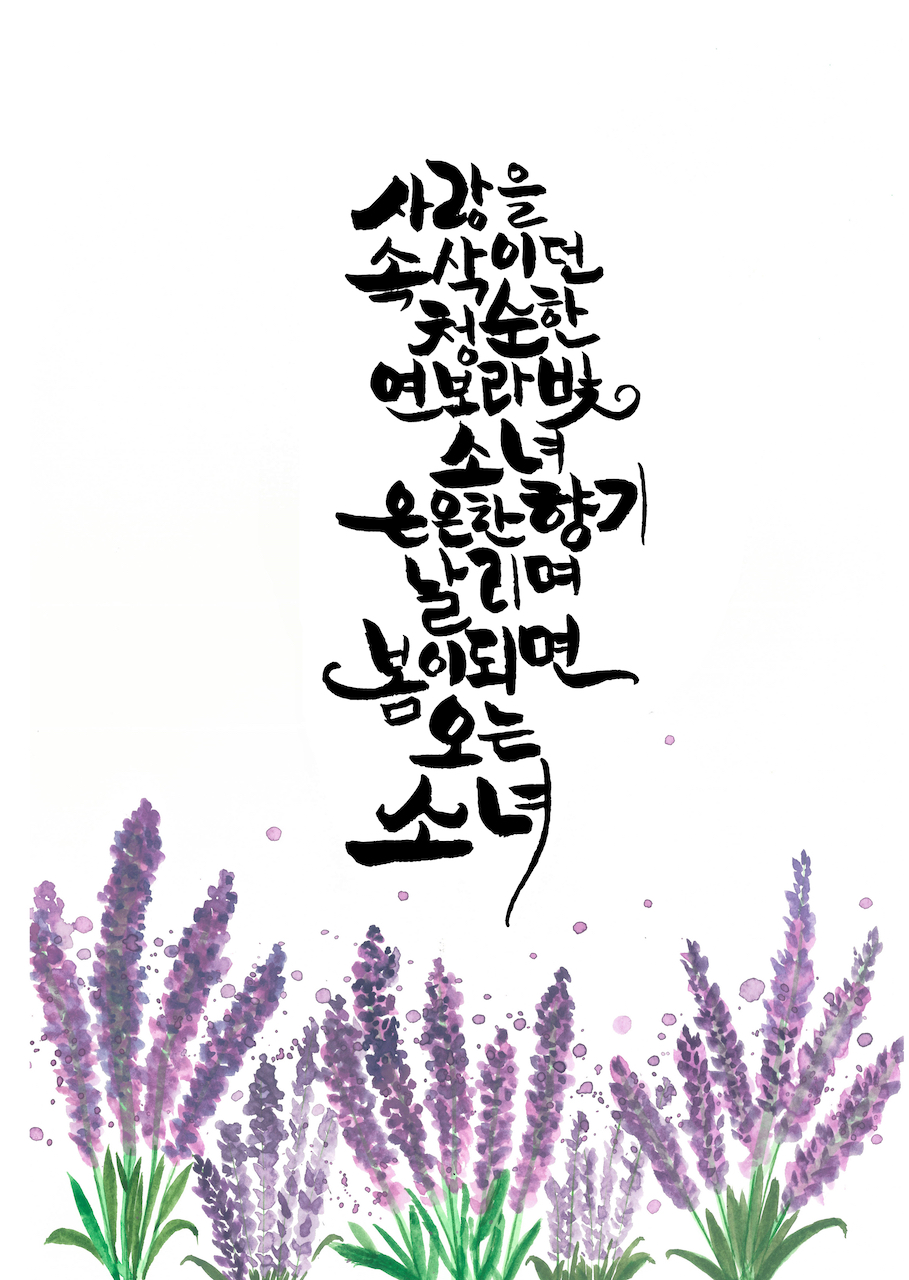 사랑을
속삭이던
청순한
연보라빛
소녀
은은한 향기
날리며
봄이되면
오는
소녀